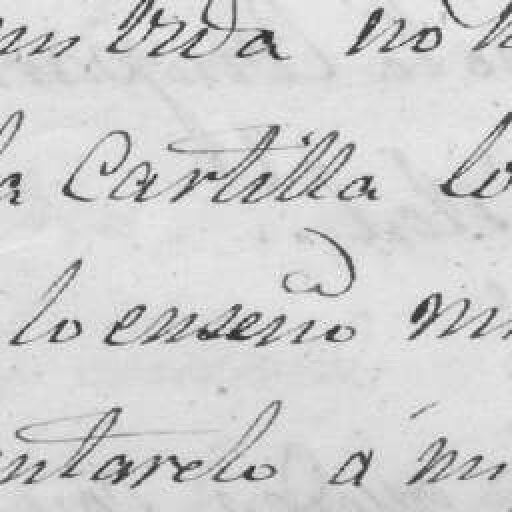 vida no
la Cartilla lo
lo enseño
ntarelo a mi